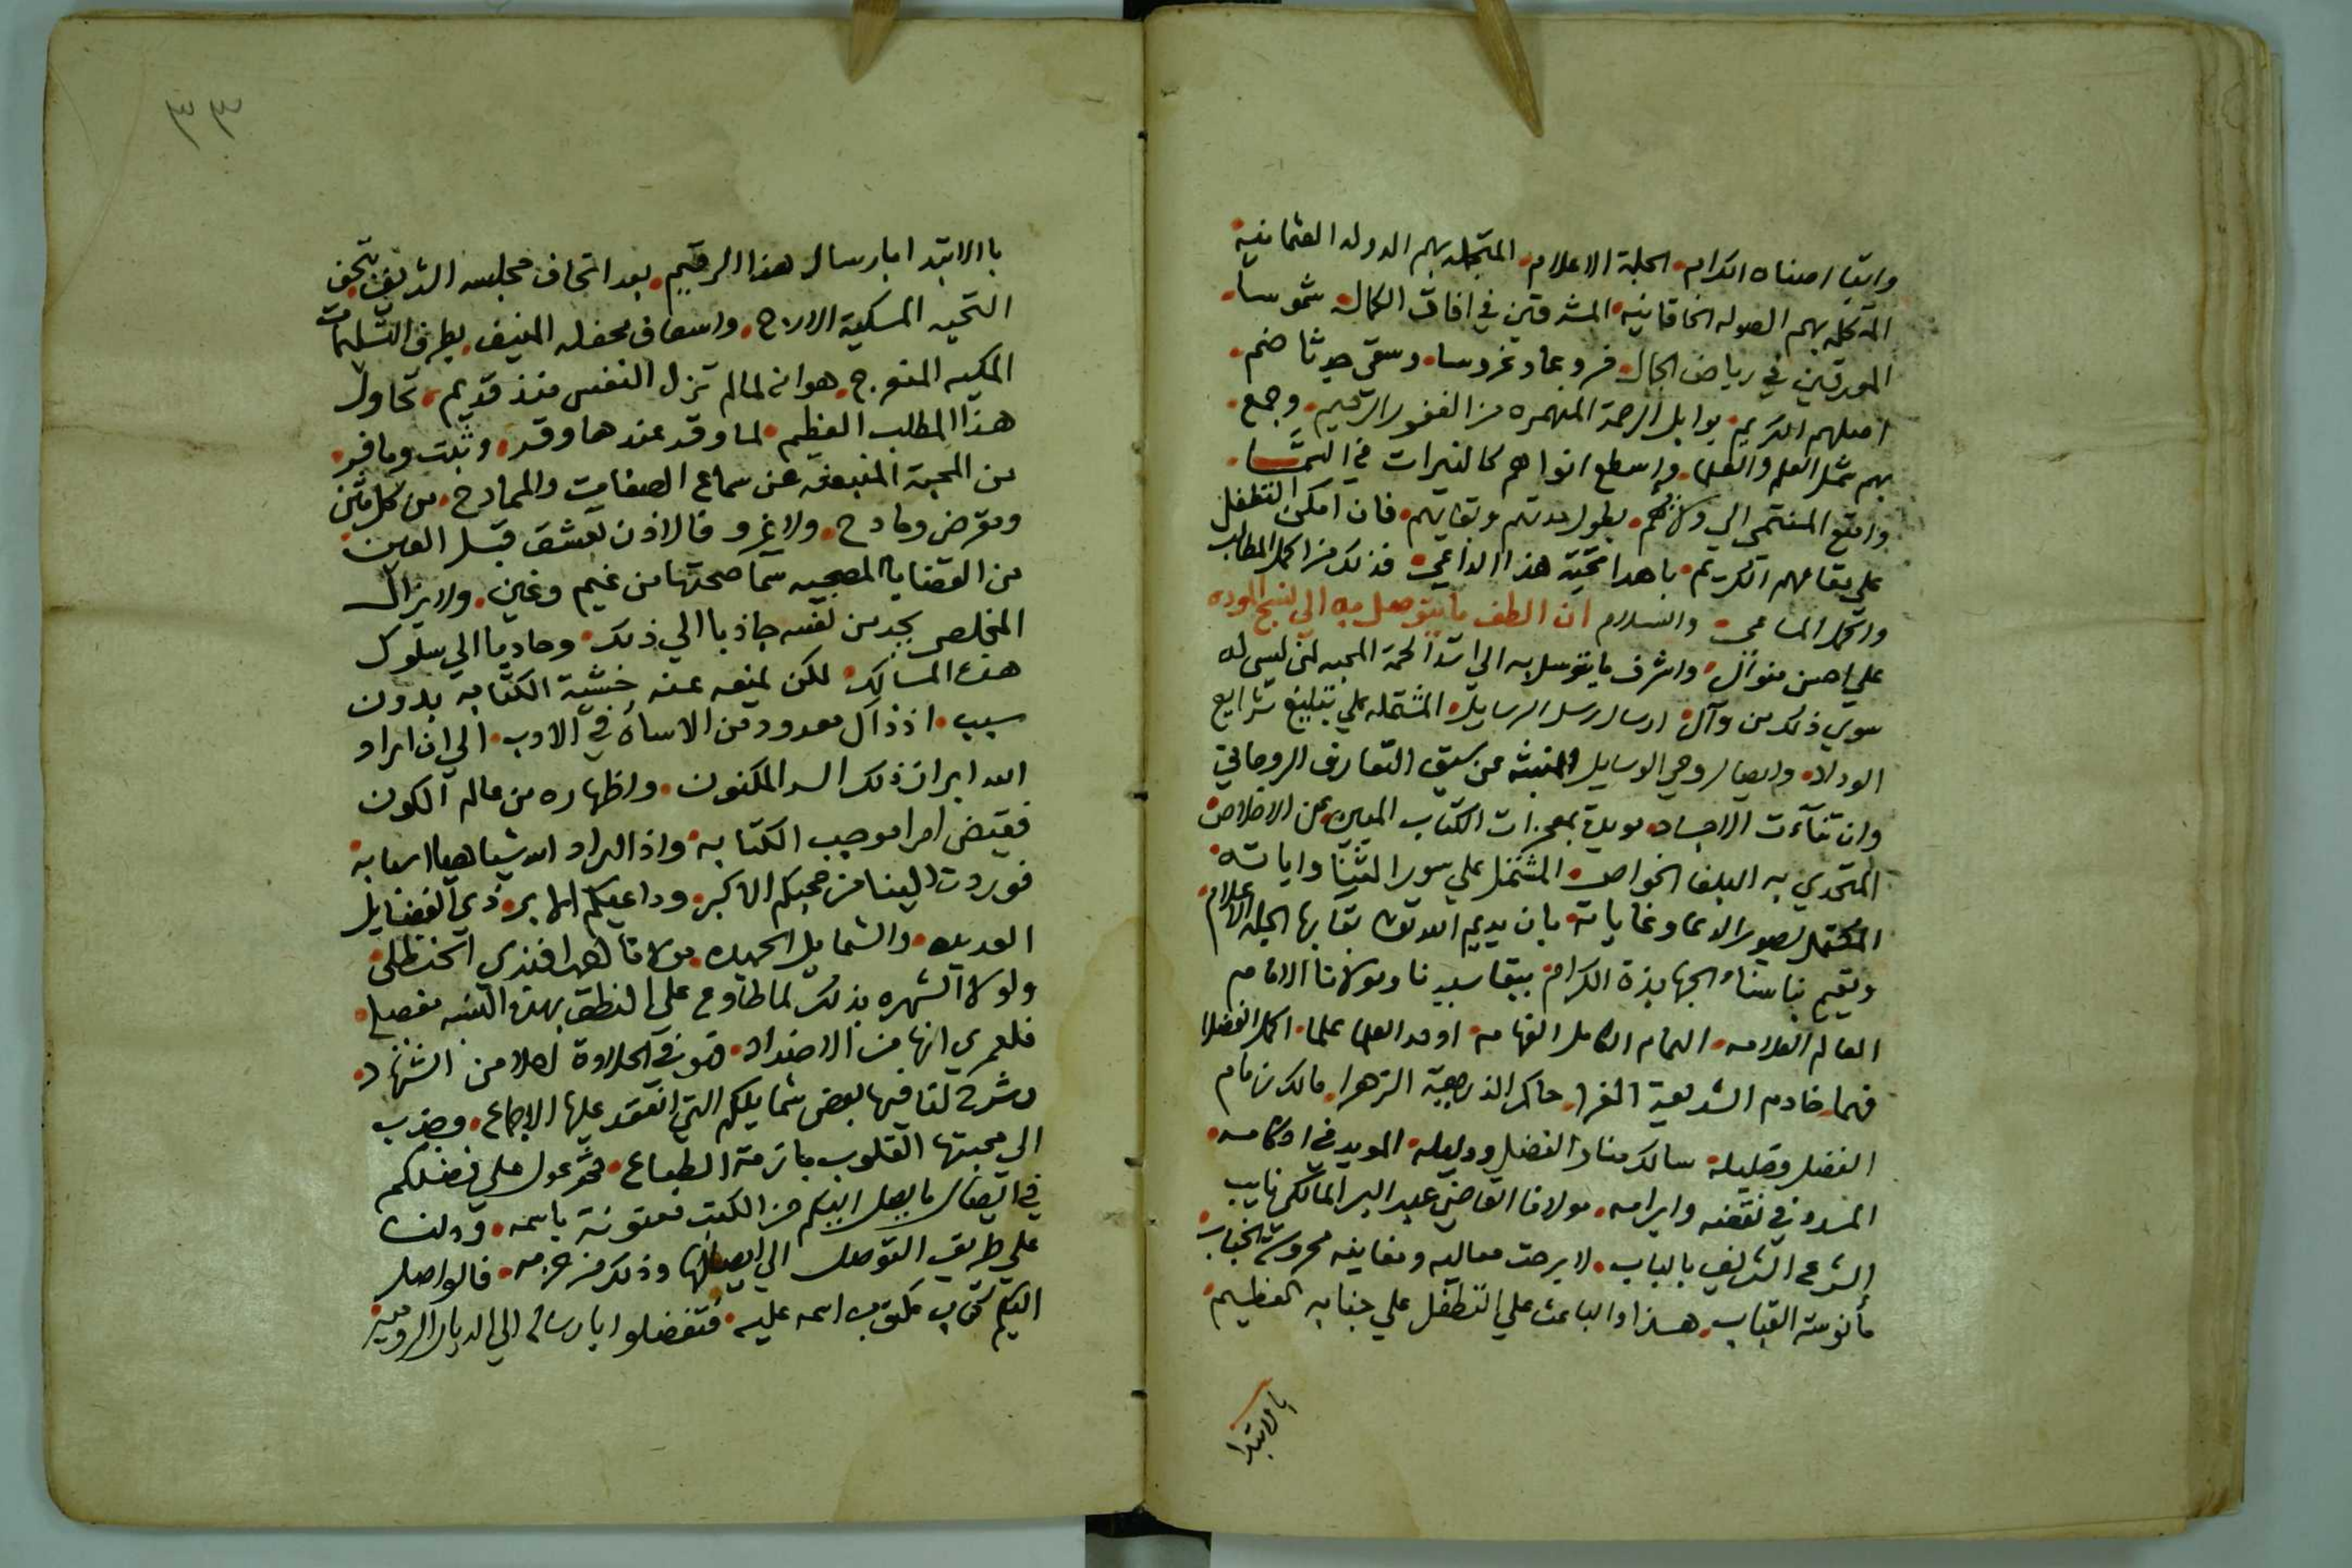 وابقا اصناه الكرام الجلة الاعلام المتجمله بهم الدوله العثمانية
المتكله بهم الصوله الخاقانيه المشرقين في افاق الكمال شموسا
المورقين في رياض الجمال فروعا وغروسا وسقى جدثا ضم
اصلهم الكريم بوابل الرحمة المنهمره من الغفور الرحيم وجمع
بهم شمل العلم والعلما واسطع انواهم كالنيرات في السما
وامتع المنتمى الي ولائهم بطول مدتهم وبقايهم فان امكن التطفل
على مقامهم الكريم باهدا تحية هذا الداعي فذلك من اكمل المطالب
واكمل المساعي والسلام ان الطف ما يتوصل به الي نهج الموده
علي احسن منوال واشرف ما يتوسل به الي اشد لحمة المحبه لمن ليس له
سوي ذلك من وآل ارسال رسل الرسايل المشتمله علي تبليغ شرايع
الوداد وايصال وحي الوسايل المنبثه عن سبق التعارف الروحاني
وان تنآءت الاجساد مويدة بمعجزات الكتاب المبين عن الاخلاص
المتحدي به البلغا الخواص المشتمل علي سور الثنا واياته
المكتمل لصور الدعا وغاياته بان يديم الله تعالى بقا بها الجلة الاعلام
ويقيم بناسنا الجهابذة الكرام ببقا سيدنا ومولانا الامام
العالم العلامه الهمام الكامل الفهامه اوحد العلما علما اكمل الفضلا
فهما خادم الشريعة الغرا حاكم الزهرا مالك زمام
الفضل وقليله سالك منار الفضل ودليله المويد في احكامه
المسدد في نقضه وابرامه مولانا القاضي عبد البر المالكي نايب
الشرع الشريف بالباب لا برحت معاليه ومغانيه محروسة الجناب
مأنوسة القباب هذا والباعث علي التطفل علي جنابه العظيم
بالابتدا
٣٣
باالابتدا بارسال هذا الرقيم بعد اتحاف مجلسه الشريف بتحف
التحيه المسكية الارج واسعاف محفله المنيف بطرف التسليمات
المكيه المنعرج هوانه لما لم تزل النفس منذ قديم تحاول
هذا المطلب العظيم لما وقد عندها وقر وثبت وما فر
من المحبة المنبعثه عن سماع الصفات والممادح من كل مثن
ومقرض ومادح ولا غرو فالاذن تعشق قبل العين
من القضايا المصححه سما صحتها من غيم وغين ولا يزال
المخلص يجد من نفسه جاذبا الي ذلك وحاديا الي سلوك
هذه المسالك لكن يمنعه عنه خشية الكتابه بدون
سبب اذ ذاك معدود من الاساة في الادب الي ان اراد
الله ابراز ذلك السر المكنون واظهاره من عالم الكون
فقيض امرا موجب الكتابة واذا اراد الله شيا هيا اسبابه
فوردت الينا من محبكم الاكبر وداعيكم الابر ذي الفضايل
العديده والشمايل الحميده مولانا افندي الحنظلي
ولولا الشهره بذلك لما طاوع على النطق بهذه النسبه مفصلي
فلعمري انها من الاضداد فهو في الحلاوة احلا من الشهاد
وشرح لنا فيها بعض شمايلكم التي انعقد عليها الاجماع وجذب
الى محبتها القلوب بازمة الطباع ثم عول علي فضلكم
في ايصال ما يصل اليكم من الكتب معنونة باسمه ودلنا
علي طريق التوصل الي ايصالها وذلك من عزمه فالواصل
اليكم كتاب مكتوب اسمه عليه فتفضلوا بارساله الي الديار الروميه